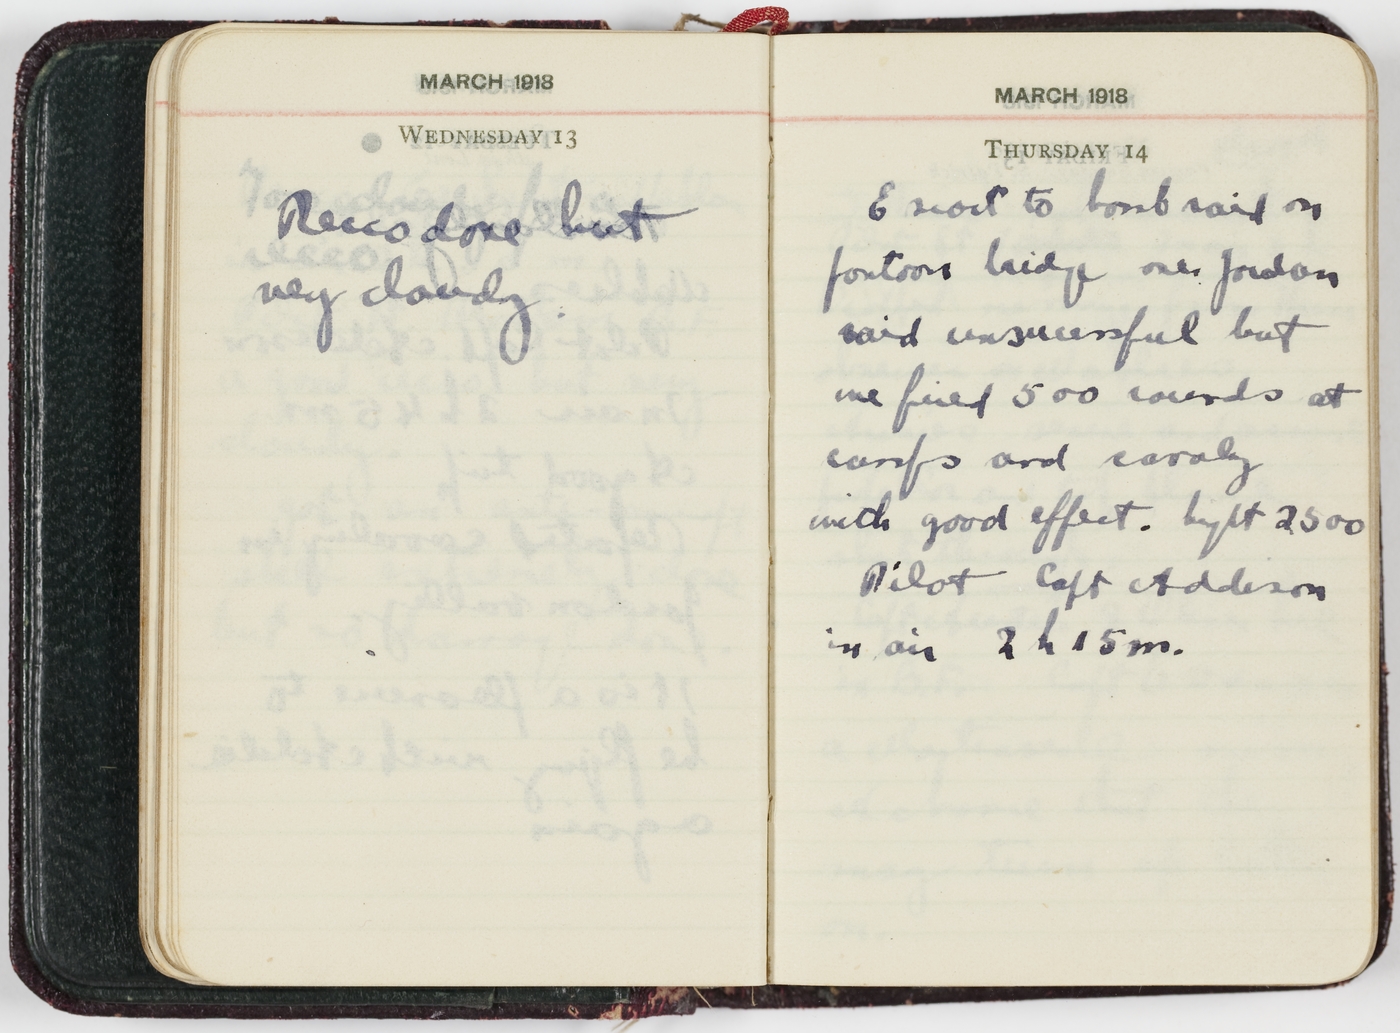 MARCH 1918
WEDNESDAY 13
Recco done but
very cloudy.
MARCH 1918
THURSDAY 14
Escort to bomb raid on
pontoon bridge over Jordan
raid unsucessful but
we fired 500 rounds at
camps and cavalry
with good effect. hight 2500
Pilot Capt Addison
in air 2 h 15 m.